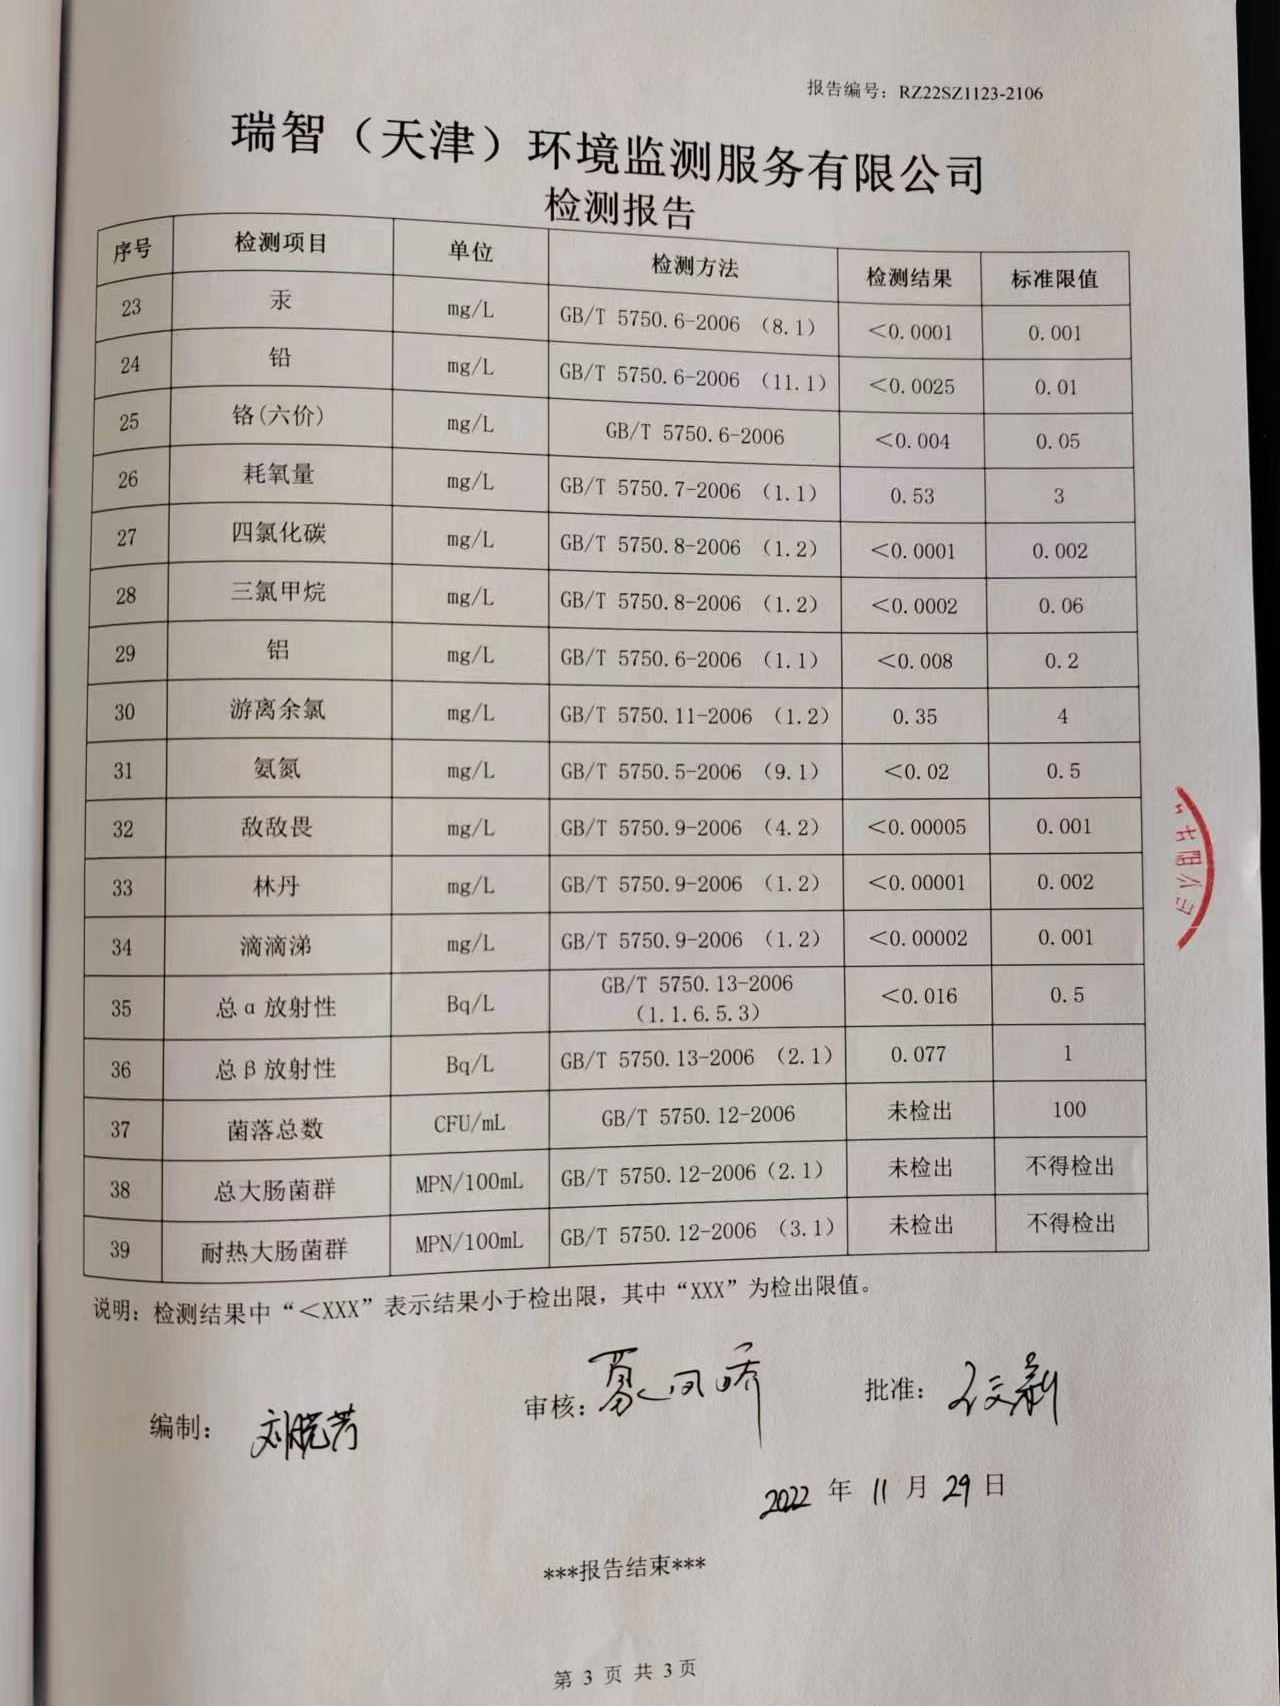 报告编号：RZ22SZ1123-2106
瑞智（天津）环境监测服务有限公司
检测报告
序号 检测项目 单位 检测方法 检测结果 标准限值
23 汞 mg/L GB/T 5750.6-2006 （8.1） <0.0001 0.001
24 铅 mg/L GB/T 5750.6-2006 （11.1） <0.0025 0.01
25 铬(六价) mg/L GB/T 5750.6-2006 <0.004 0.05
26 耗氧量 mg/L GB/T 5750.7-2006 （1.1） 0.53 3
27 四氯化碳 mg/L GB/T 5750.8-2006 （1.2） <0.0001 0.002
28 三氯甲烷 mg/L GB/T 5750.8-2006 （1.2） <0.0002 0.06
29 铝 mg/L GB/T 5750.6-2006 （1.1） <0.008 0.2
30 游离余氯 mg/L GB/T 5750.11-2006 （1.2） 0.35 4
31 氨氮 mg/L GB/T 5750.5-2006 （9.1） <0.02 0.5
32 敌敌畏 mg/L GB/T 5750.9-2006 （4.2） <0.00005 0.001
33 林丹 mg/L GB/T 5750.9-2006 （1.2） <0.00001 0.002
34 滴滴涕 mg/L GB/T 5750.9-2006 （1.2） <0.00002 0.001
35 总α放射性 Bq/L GB/T 5750.13-2006 （1.1.6.5.3） <0.016 0.5
36 总β放射性 Bq/L GB/T 5750.13-2006 （2.1） 0.077 1
37 菌落总数 CFU/mL GB/T 5750.12-2006 未检出 100
38 总大肠菌群 MPN/100mL GB/T 5750.12-2006（2.1） 未检出 不得检出
39 耐热大肠菌群 MPN/100mL GB/T 5750.12-2006 （3.1） 未检出 不得检出
说明：检测结果中“<XXX”表示结果小于检出限，其中“XXX”为检出限值。
编制：刘晓芳 审核：葛凤娇 批准：
2022 年 11 月 29 日
***报告结束***
第 3 页 共 3 页